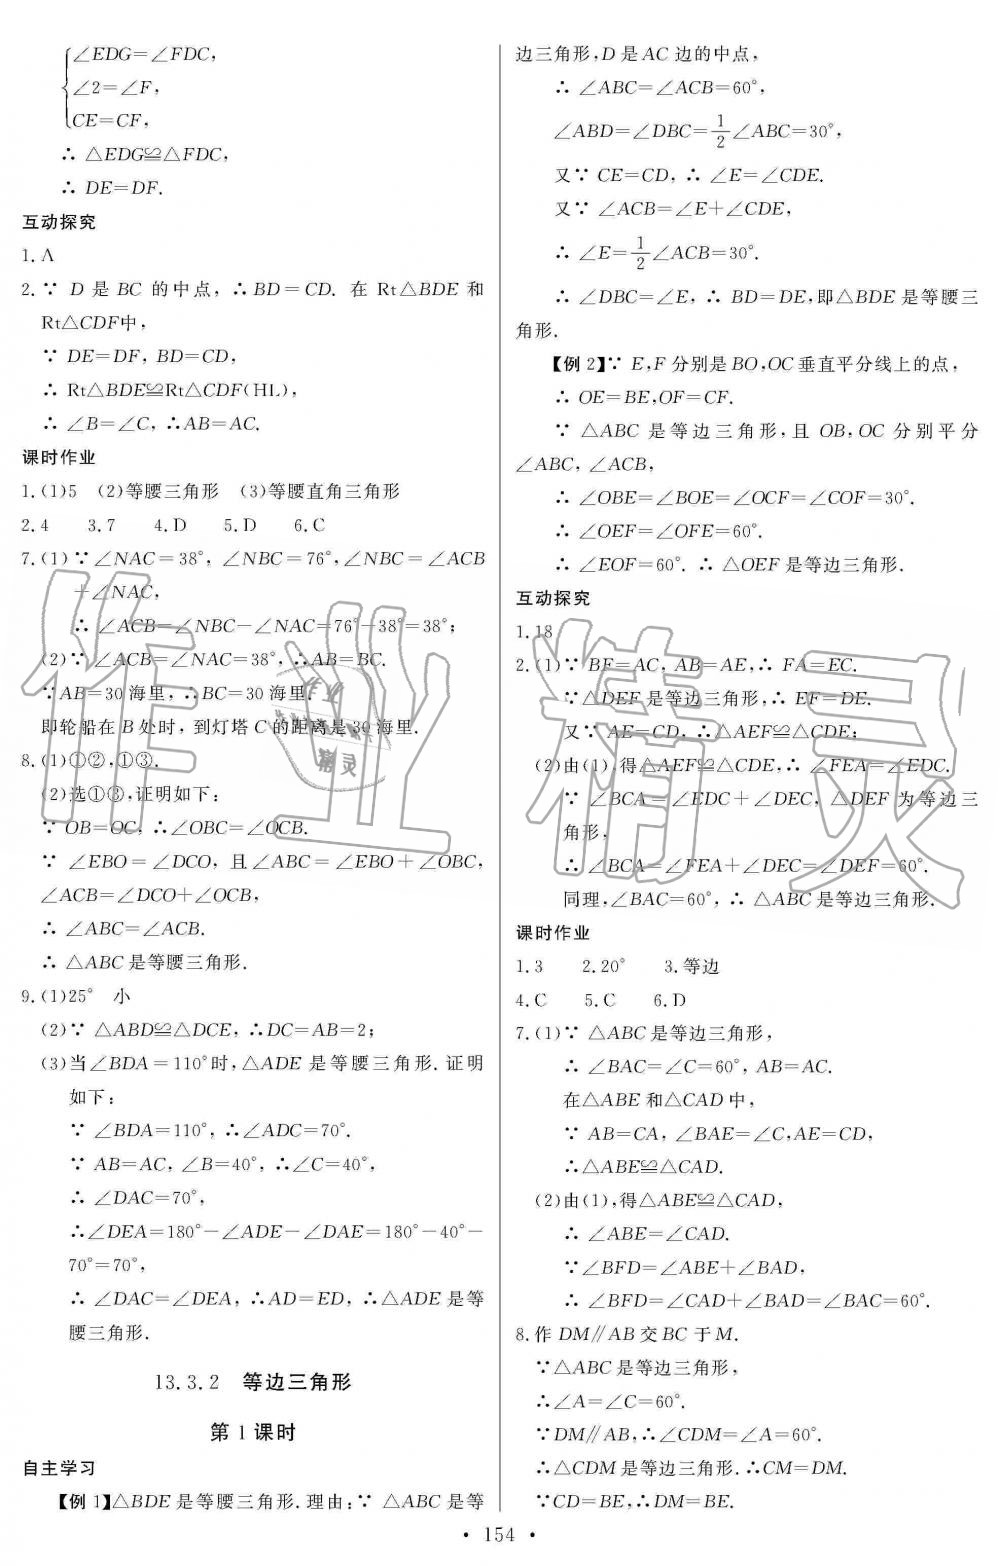 ∠EDG=∠FDC,
∠2=∠F,
CE=CF,
∴ △EDG≌△FDC,
∴ DE=DF.
互动探究
1. A
2. ∵ D 是 BC 的中点,∴BD=CD. 在 Rt△BDE 和
Rt△CDF中,
∵ DE=DF, BD=CD,
∴ Rt△BDE≌Rt△CDF(HL),
∴ ∠B=∠C, ∴AB=AC.
课时作业
1. (1)5 (2)等腰三角形 (3)等腰直角三角形
2. 4 3. 7 4. D 5. D 6. C
7. (1)∵∠NAC=38°, ∠NBC=76°,∠NBC=∠ACB
+∠NAC,
∴ ∠ACB=∠NBC-∠NAC=76°-38°=38°;
(2)∵ ∠ACB=∠NAC=38°,∴AB=BC.
∵AB=30 海里,∴BC=30 海里.
即轮船在 B 处时, 到灯塔 C 的距离是 30 海里.
8. (1)①②,①③.
(2)选①③,证明如下:
∵ OB=OC, ∴∠OBC=∠OCB.
∵ ∠EBO=∠DCO, 且∠ABC=∠EBO+∠OBC,
∠ACB=∠DCO+∠OCB,
∴ ∠ABC=∠ACB.
∴ △ABC 是等腰三角形.
9. (1)25° 小
(2)∵ △ABD≌△DCE, ∴DC=AB=2;
(3)当∠BDA=110°时,△ADE 是等腰三角形. 证明
如下:
∵ ∠BDA=110°, ∴∠ADC=70°.
∵ AB=AC, ∠B=40°, ∴∠C=40°,
∴ ∠DAC=70°,
∴∠DEA=180°-∠ADE-∠DAE=180°-40°-
70°=70°,
∴ ∠DAC=∠DEA, ∴AD=ED, ∴△ADE 是等
腰三角形.
13.3.2 等边三角形
第 1 课时
自主学习
【例 1】△BDE 是等腰三角形. 理由:∵ △ABC 是等
边三角形,D 是 AC 边的中点,
∴ ∠ABC=∠ACB=60°,
∠ABD=∠DBC=1/2∠ABC=30°,
又∵ CE=CD, ∴ ∠E=∠CDE.
又∵ ∠ACB=∠E+∠CDE,
∴ ∠E=1/2∠ACB=30°.
∴ ∠DBC=∠E, ∴ BD=DE,即△BDE 是等腰三
角形.
【例 2】∵ E,F 分别是 BO,OC 垂直平分线上的点,
∴ OE=BE,OF=CF.
∵ △ABC 是等边三角形,且 OB,OC 分别平分
∠ABC, ∠ACB,
∴ ∠OBE=∠BOE=∠OCF=∠COF=30°.
∴ ∠OEF=∠OFE=60°.
∴ ∠EOF=60°. ∴ △OEF 是等边三角形.
互动探究
1. 18
2. (1)∵ BF=AC, AB=AE,∴ FA=EC.
∵△DEF 是等边三角形,∴ EF=DE.
又∵ AE=CD, ∴△AEF≌△CDE;
(2)由(1) 得△AEF≌△CDE,∴ ∠FEA=∠EDC.
∵ ∠BCA=∠EDC+∠DEC, △DEF 为等边三
角形,
∴ ∠BCA=∠FEA+∠DEC=∠DEF=60°.
同理,∠BAC=60°, ∴ △ABC 是等边三角形.
课时作业
1. 3 2. 20° 3. 等边
4. C 5. C 6. D
7. (1)∵ △ABC 是等边三角形,
∴ ∠BAC=∠C=60°, AB=AC.
在△ABE 和△CAD 中,
∵ AB=CA, ∠BAE=∠C,AE=CD,
∴△ABE≌△CAD.
(2)由(1),得△ABE≌△CAD,
∴ ∠ABE=∠CAD.
∵∠BFD=∠ABE+∠BAD,
∴ ∠BFD=∠CAD+∠BAD=∠BAC=60°.
8. 作 DM∥AB 交 BC 于 M.
∵△ABC 是等边三角形,
∴∠A=∠C=60°.
∵DM∥AB,∴∠CDM=∠A=60°.
∴△CDM 是等边三角形. ∴CM=DM.
∵CD=BE,∴DM=BE.
• 154 •
作业精灵
作业
精灵